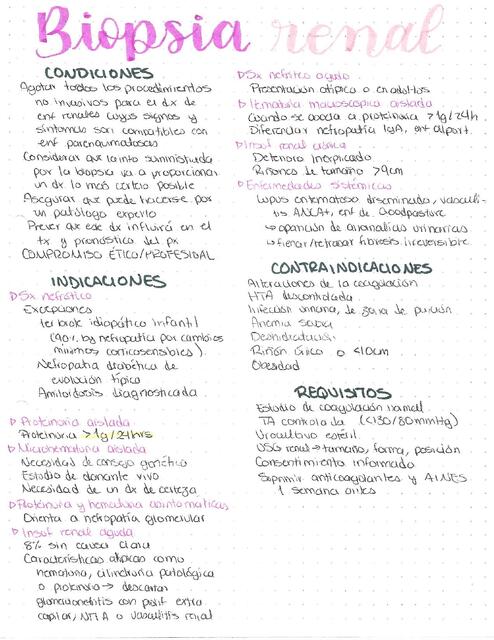 Biopsia renal
CONDICIONES
Agotar todos los procedimientos
no invasivos para el dx de
enf renales cuyos signos y
síntomas son compatibles con
enf parenquimatosas
Considerar que la info suministrada
por la biopsia va a proporcionar
un dx lo más certero posible
Asegurar que puede hacerse por
un patólogo experto
Prever que ese dx influirá en el
tx y pronóstico del px
COMPROMISO ÉTICO/PROFESIONAL
INDICACIONES
Sx nefrótico
Excepciones
1er brote idiopático infantil
(90% by nefropatía por cambios
mínimos corticosensibles)
Nefropatía diabética de
evolución típica
Amiloidosis diagnosticada
Proteinuria aislada
Proteinuria >1g/24hrs
Microhematuria aislada
Necesidad de consejo genético
Estudio de donante vivo
Necesidad de un dx de certeza
Proteinuria y hematuria asintomáticas
Orienta a nefropatía glomerular
Insuf renal aguda
8% sin causa clara
Características atípicas como
hematuria, cilindruria patológica
o proteinuria → descartar
glomerulonefritis con prolif extra
capilar, NTIA o vasculitis renal
Sx nefrítico agudo
Presentación atípica o en adultos
Hematuria macroscópica aislada
Cuando se asocia a proteinuria >1g/24h
Diferenciar nefropatía IgA, enf alport
Insuf renal crónica
Deterioro inexplicado
Riñones de tamaño >9cm
Enfermedades sistémicas
Lupus eritematoso diseminado, vasculi-
tis ANCA+, enf de Goodpasture
→ aparición de anomalías urinarias
→ frenar/retrasar fibrosis irreversible
CONTRAINDICACIONES
Alteraciones de la coagulación
HTA descontrolada
Infección urinaria, de zona de punción
Anemia severa
Deshidratación
Riñón único o <10cm
Obesidad
REQUISITOS
Estudio de coagulación normal
TA controlada (<130/80mmHg)
Urocultivo estéril
USG renal → tamaño, forma, posición
Consentimiento informado
Suprimir anticoagulantes y AINES
1 semana antes